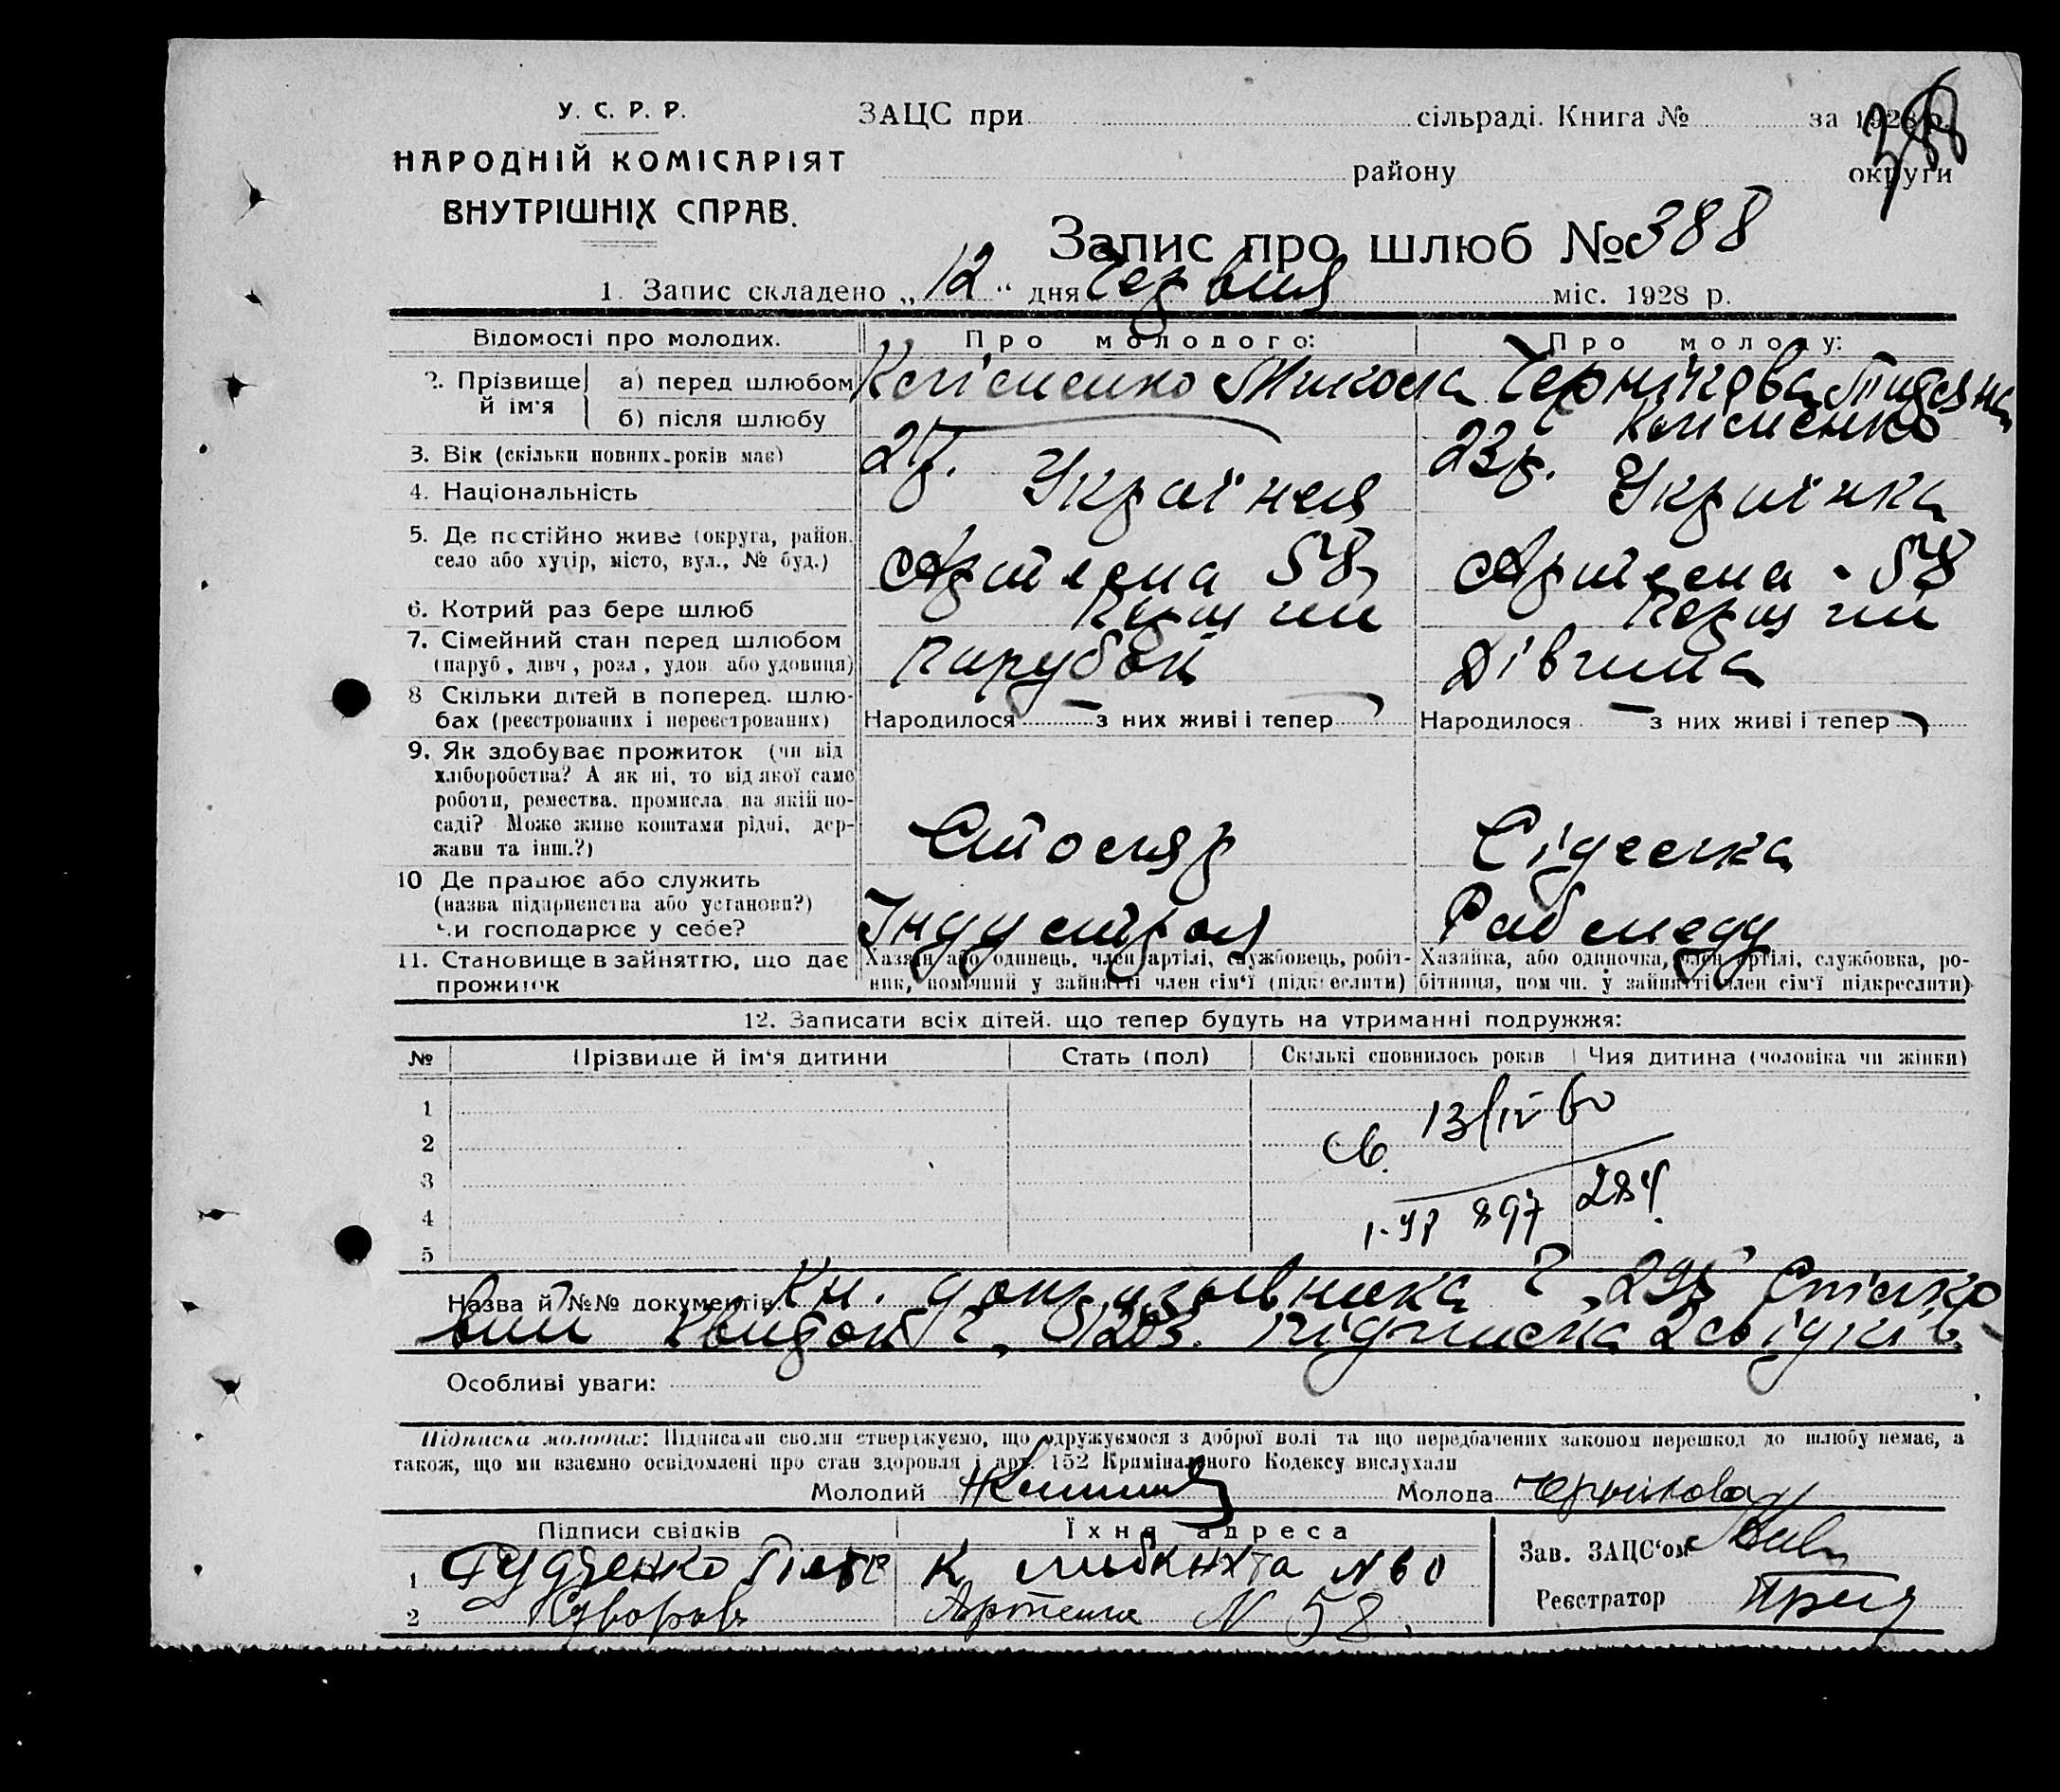 У. С. Р. Р.
НАРОДНІЙ КОМІСАРІЯТ
ВНУТРІШНІХ СПРАВ.
ЗАЦС при сільраді. Книга № за 1928 р.
району округи
388
Запис про шлюб № 388
1. Запис складено „12“ дня Червня міс. 1928 р.
Відомості про молодих. Про молодого: Про молоду:
2. Прізвище й ім'я а) перед шлюбом Клименко Микола Чернікова Тидяна
б) після шлюбу Клименко
3. Вік (скільки повних років має) 27. 23р.
4. Національність Українец Українка
5. Де постійно живе (округа, район, Артема 58 Артема - 58
село або хутір, місто, вул., № буд.)
6. Котрий раз бере шлюб Перший Перший
7. Сімейний стан перед шлюбом Парубок Дівчина
(паруб, дівч, розл, удов. або удовиця)
8 Скільки дітей в поперед. шлю-
бах (реєстрованих і нереєстрованих) Народилося — з них живі і тепер Народилося — з них живі і тепер
9. Як здобуває прожиток (чи від
хліборобства? А як ні, то від якої саме
роботи, ремества, промисла, на якій по-
саді? Може живе коштами рідні, дер- Столяр Сіделка
жави та інш.?)
10 Де працює або служить
(назва підприємства або установи?)
чи господарює у себе?
11. Становище в зайняттю, що дає
прожиток
Хазяїн або одинець, член артілі, службовець, робіт-
ник, помічний у зайнятті член сім'ї (підкреслити)
Хазяйка, або одиночка, член артілі, службовка, ро-
бітниця, пом чн. у зайнятті член сім'ї підкреслити)
12. Записати всіх дітей, що тепер будуть на утриманні подружжя:
№ Прізвище й ім'я дитини Стать (пол) Скількі сповнилось років Чия дитина (чоловіка чи жінки)
1
13/IV 60
2
3
284
4
897
5
Назва й №№ документів: Кн. допризывника 295 Спілко
вий квидок 5/203. підписка 2 свідків
Особливі уваги:
Підписка молодих: Підписами своїми стверджуємо, що одружуємося з доброї волі та що передбачених законом перешкод до шлюбу немає, а
також, що ми взаємно освідомлені про стан здоровля і арт. 152 Кримінального Кодексу вислухали
Молодий Молода Чернікова
Підписи свідків Їхня адреса
1 К либкнхта N 60
2 Артема N 58.
Зав. ЗАЦС'ом
Реєстратор